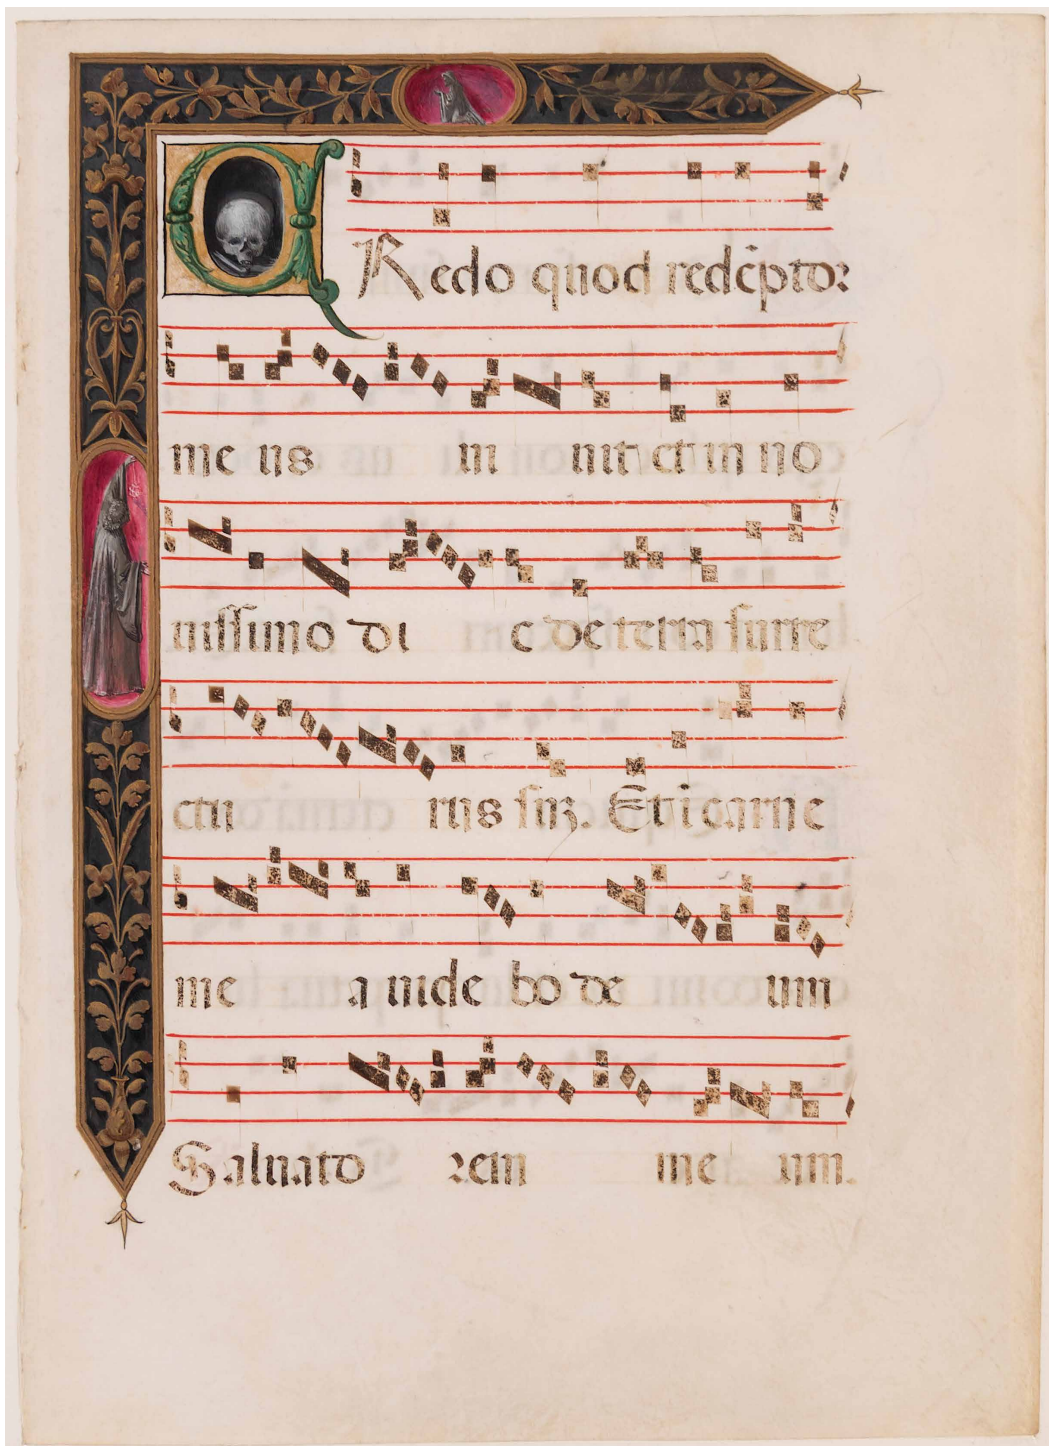 CRedo quod redẽptor
me us in uit et in no
uissimo di e de terra surre
ctu rus suꝫ. Et i carne
me a uidebo de um
Saluato rem me um.